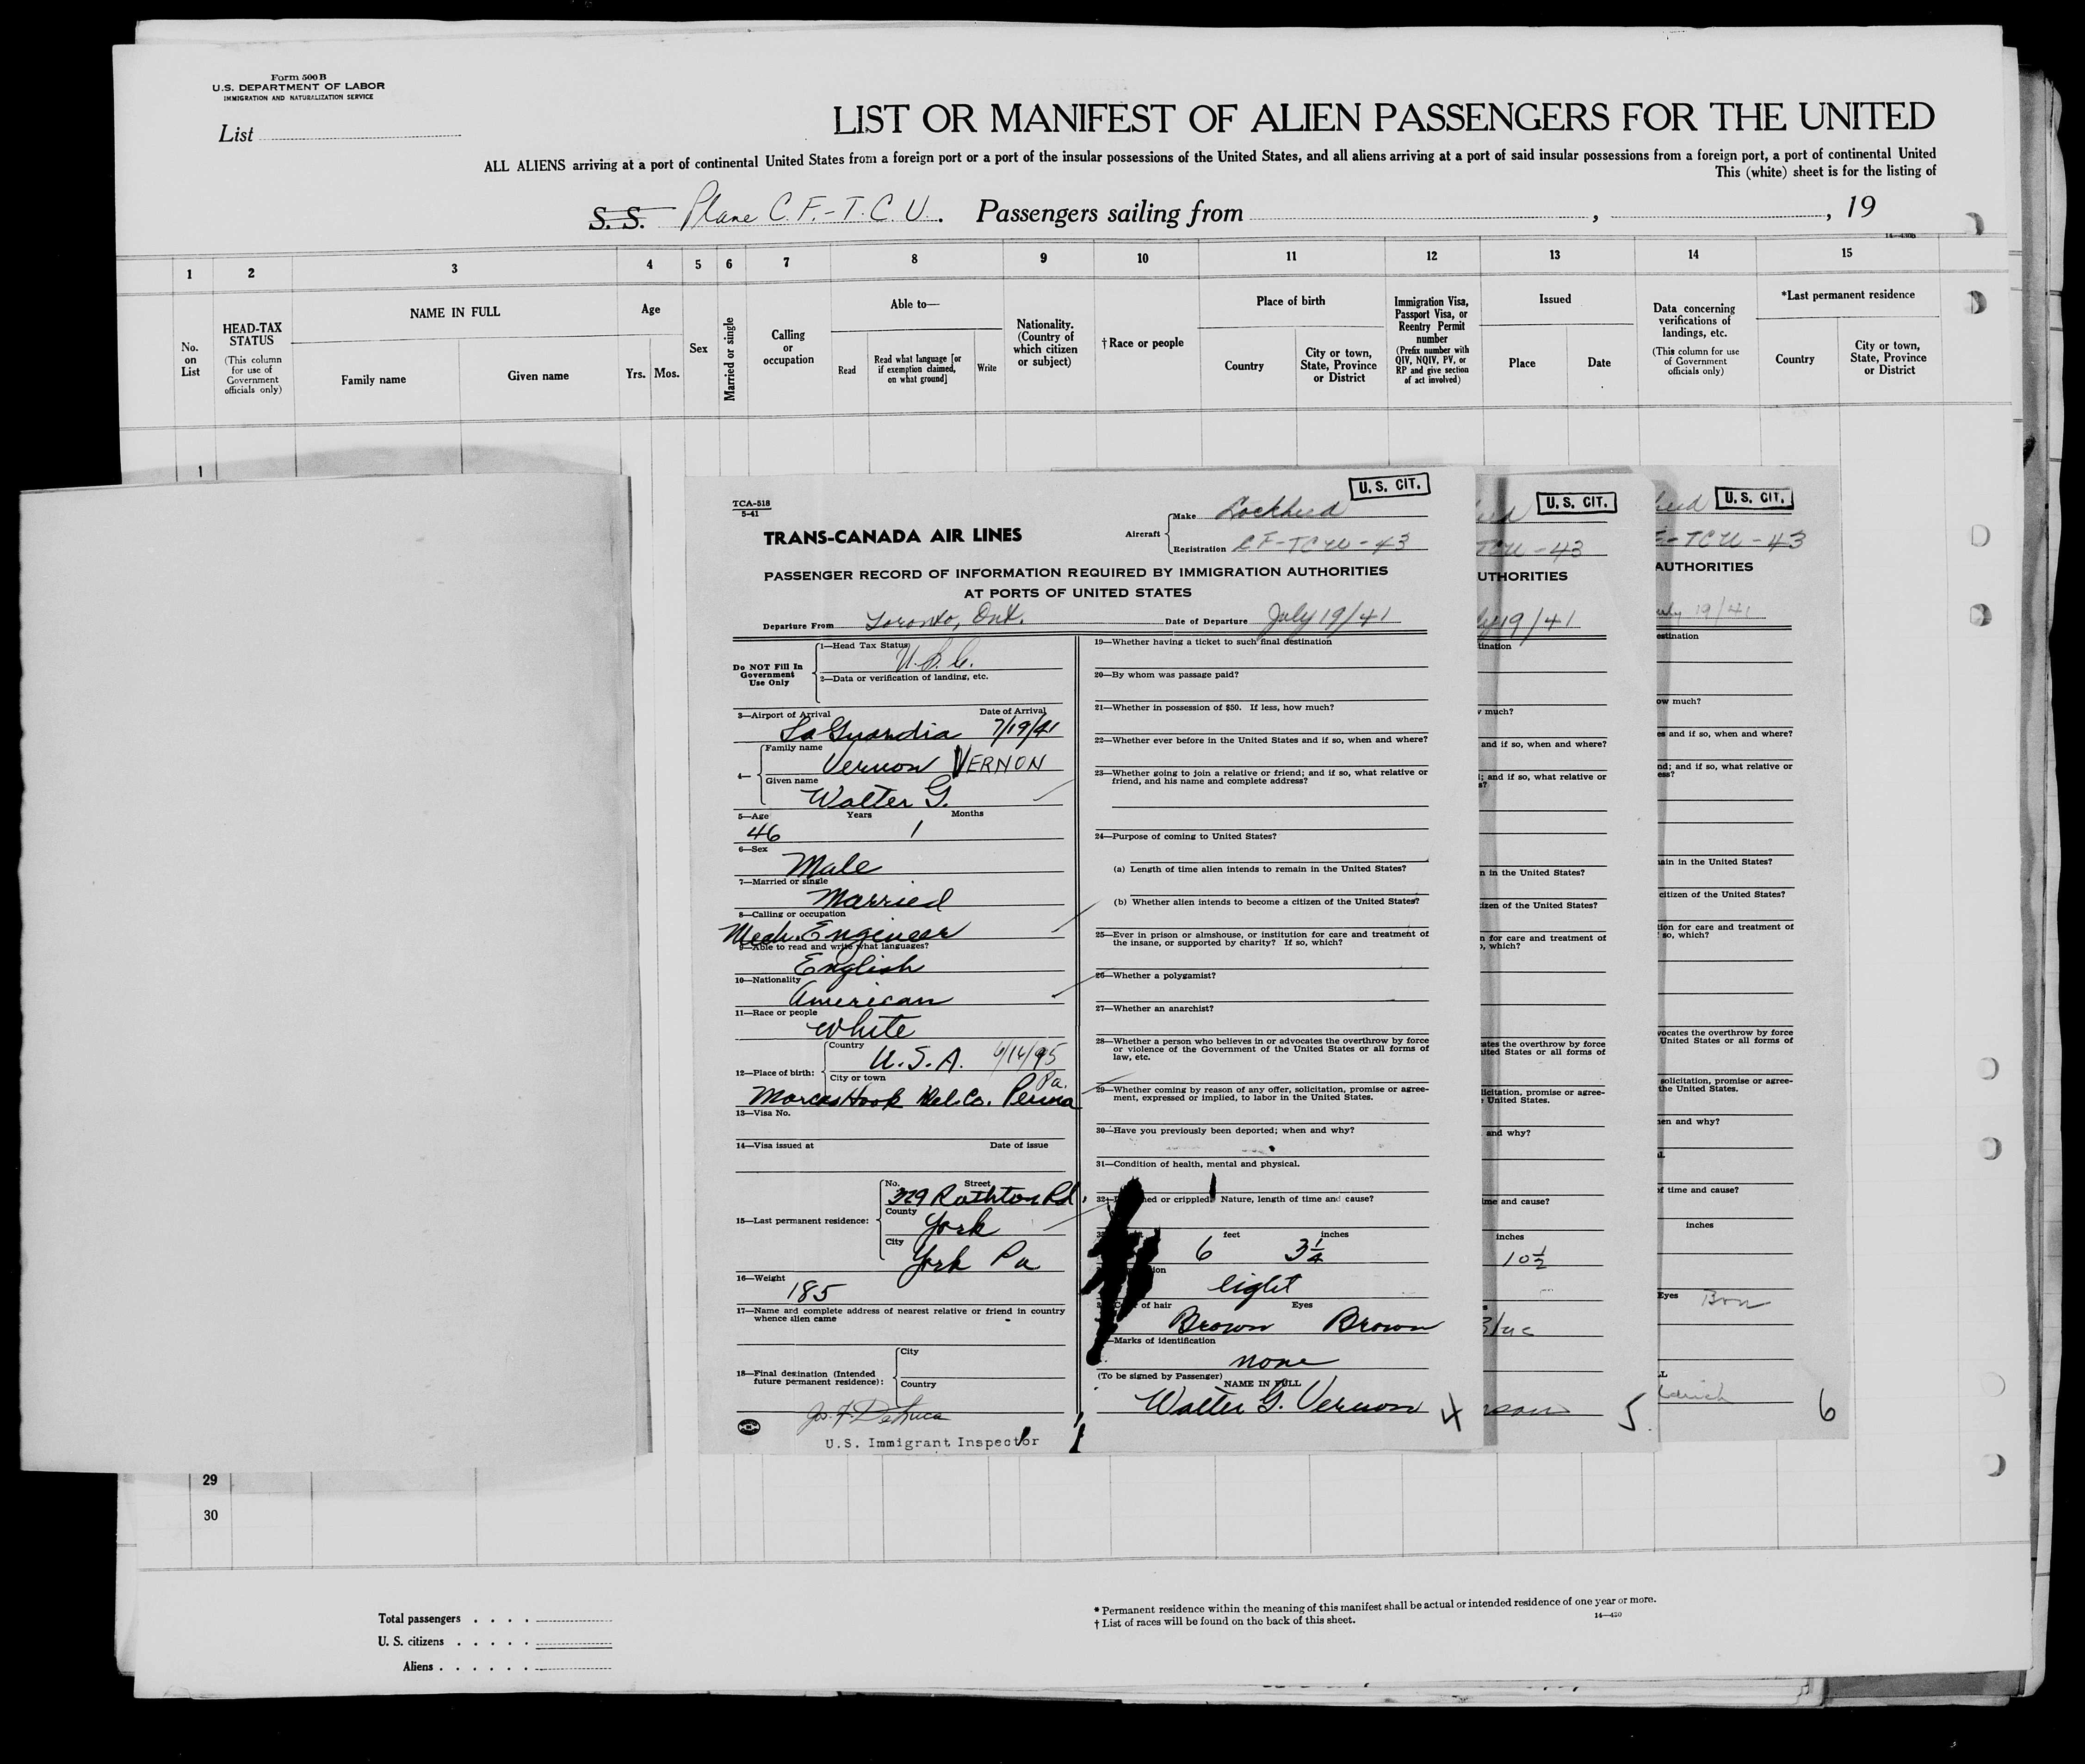 Form 500 B
U.S. DEPARTMENT OF LABOR
IMMIGRATION AND NATURALIZATION SERVICE
List
LIST OR MANIFEST OF ALIEN PASSENGERS FOR THE UNITED
ALL ALIENS arriving at a port of continental United States from a foreign port or a port of the insular possessions of the United States, and all aliens arriving at a port of said insular possessions from a foreign port, a port of continental United
This (white) sheet is for the listing of
S. S. Plane C. F.-T. C. U. Passengers sailing from , , 19
1 2 3 4 5 6 7 8 9 10 11 12 13 14 15
No. on List
HEAD-TAX STATUS
(This column for use of Government officials only)
NAME IN FULL
Family name
Given name
Age
Yrs. Mos.
Sex
Married or single
Calling or occupation
Able to—
Read
Read what language [or if exemption claimed, on what ground]
Write
Nationality. (Country of which citizen or subject)
†Race or people
Place of birth
Country
City or town, State, Province or District
Immigration Visa, Passport Visa, or Reentry Permit number
(Prefix number with QIV, NQIV, PV, or RP and give section of act involved)
Issued
Place
Date
Data concerning verifications of landings, etc.
(This column for use of Government officials only)
*Last permanent residence
Country
City or town, State, Province or District
1
TCA-518
5-41
U. S. CIT.
TRANS-CANADA AIR LINES
Aircraft
Make Lockheed
Registration CF-TCU-43
PASSENGER RECORD OF INFORMATION REQUIRED BY IMMIGRATION AUTHORITIES
AT PORTS OF UNITED STATES
Departure From Toronto, Ont. Date of Departure July 19/41
Do NOT Fill In Government Use Only
1—Head Tax Status
U.S.C.
2—Data or verification of landing, etc.
3—Airport of Arrival Date of Arrival
La Guardia 7/19/41
4—
Family name
Vernon VERNON
Given name
Walter G.
5—Age Years Months
46 1
6—Sex
Male
7—Married or single
Married
8—Calling or occupation
Mech. Engineer
9—Able to read and write what languages?
English
10—Nationality
American
11—Race or people
White
12—Place of birth:
Country
U.S.A. 6/14/95
City or town
Pa.
Marcus Hook Del. Co. Penna
13—Visa No.
14—Visa issued at Date of issue
15—Last permanent residence:
No. Street
329 Rathton Rd.
County
York
City
York Pa
16—Weight
185
17—Name and complete address of nearest relative or friend in country
whence alien came
18—Final desination (Intended
future permanent residence):
City
Country
U.S. Immigrant Inspector
19—Whether having a ticket to such final destination
20—By whom was passage paid?
21—Whether in possession of $50. If less, how much?
22—Whether ever before in the United States and if so, when and where?
23—Whether going to join a relative or friend; and if so, what relative or
friend, and his name and complete address?
24—Purpose of coming to United States?
(a) Length of time alien intends to remain in the United States?
(b) Whether alien intends to become a citizen of the United States?
25—Ever in prison or almshouse, or institution for care and treatment of
the insane, or supported by charity? If so, which?
26—Whether a polygamist?
27—Whether an anarchist?
28—Whether a person who believes in or advocates the overthrow by force
or violence of the Government of the United States or all forms of
law, etc.
29—Whether coming by reason of any offer, solicitation, promise or agree-
ment, expressed or implied, to labor in the United States.
30—Have you previously been deported; when and why?
31—Condition of health, mental and physical.
or crippled. Nature, length of time and cause?
feet inches
6 3 1/4
light
of hair Eyes
Brown Brown
Marks of identification
none
(To be signed by Passenger)
NAME IN FULL
Walter G. Vernon 4
U. S. CIT.
TCU-43
UTHORITIES
19/41
tination
much?
and if so, when and where?
; and if so, what relative or
s?
n in the United States?
izen of the United States?
n for care and treatment of
o, which?
ates the overthrow by force
ited States or all forms of
licitation, promise or agree-
United States.
and why?
me and cause?
inches
10 1/2
5
U. S. CIT.
F-TCU-43
AUTHORITIES
19/41
estination
ow much?
es and if so, when and where?
nd; and if so, what relative or
ess?
ain in the United States?
citizen of the United States?
tion for care and treatment of
so, which?
vocates the overthrow by force
United States or all forms of
solicitation, promise or agree-
the United States.
en and why?
of time and cause?
inches
Eyes Brn
6
29
30
Total passengers
U. S. citizens
Aliens
* Permanent residence within the meaning of this manifest shall be actual or intended residence of one year or more.
† List of races will be found on the back of this sheet.
14—430